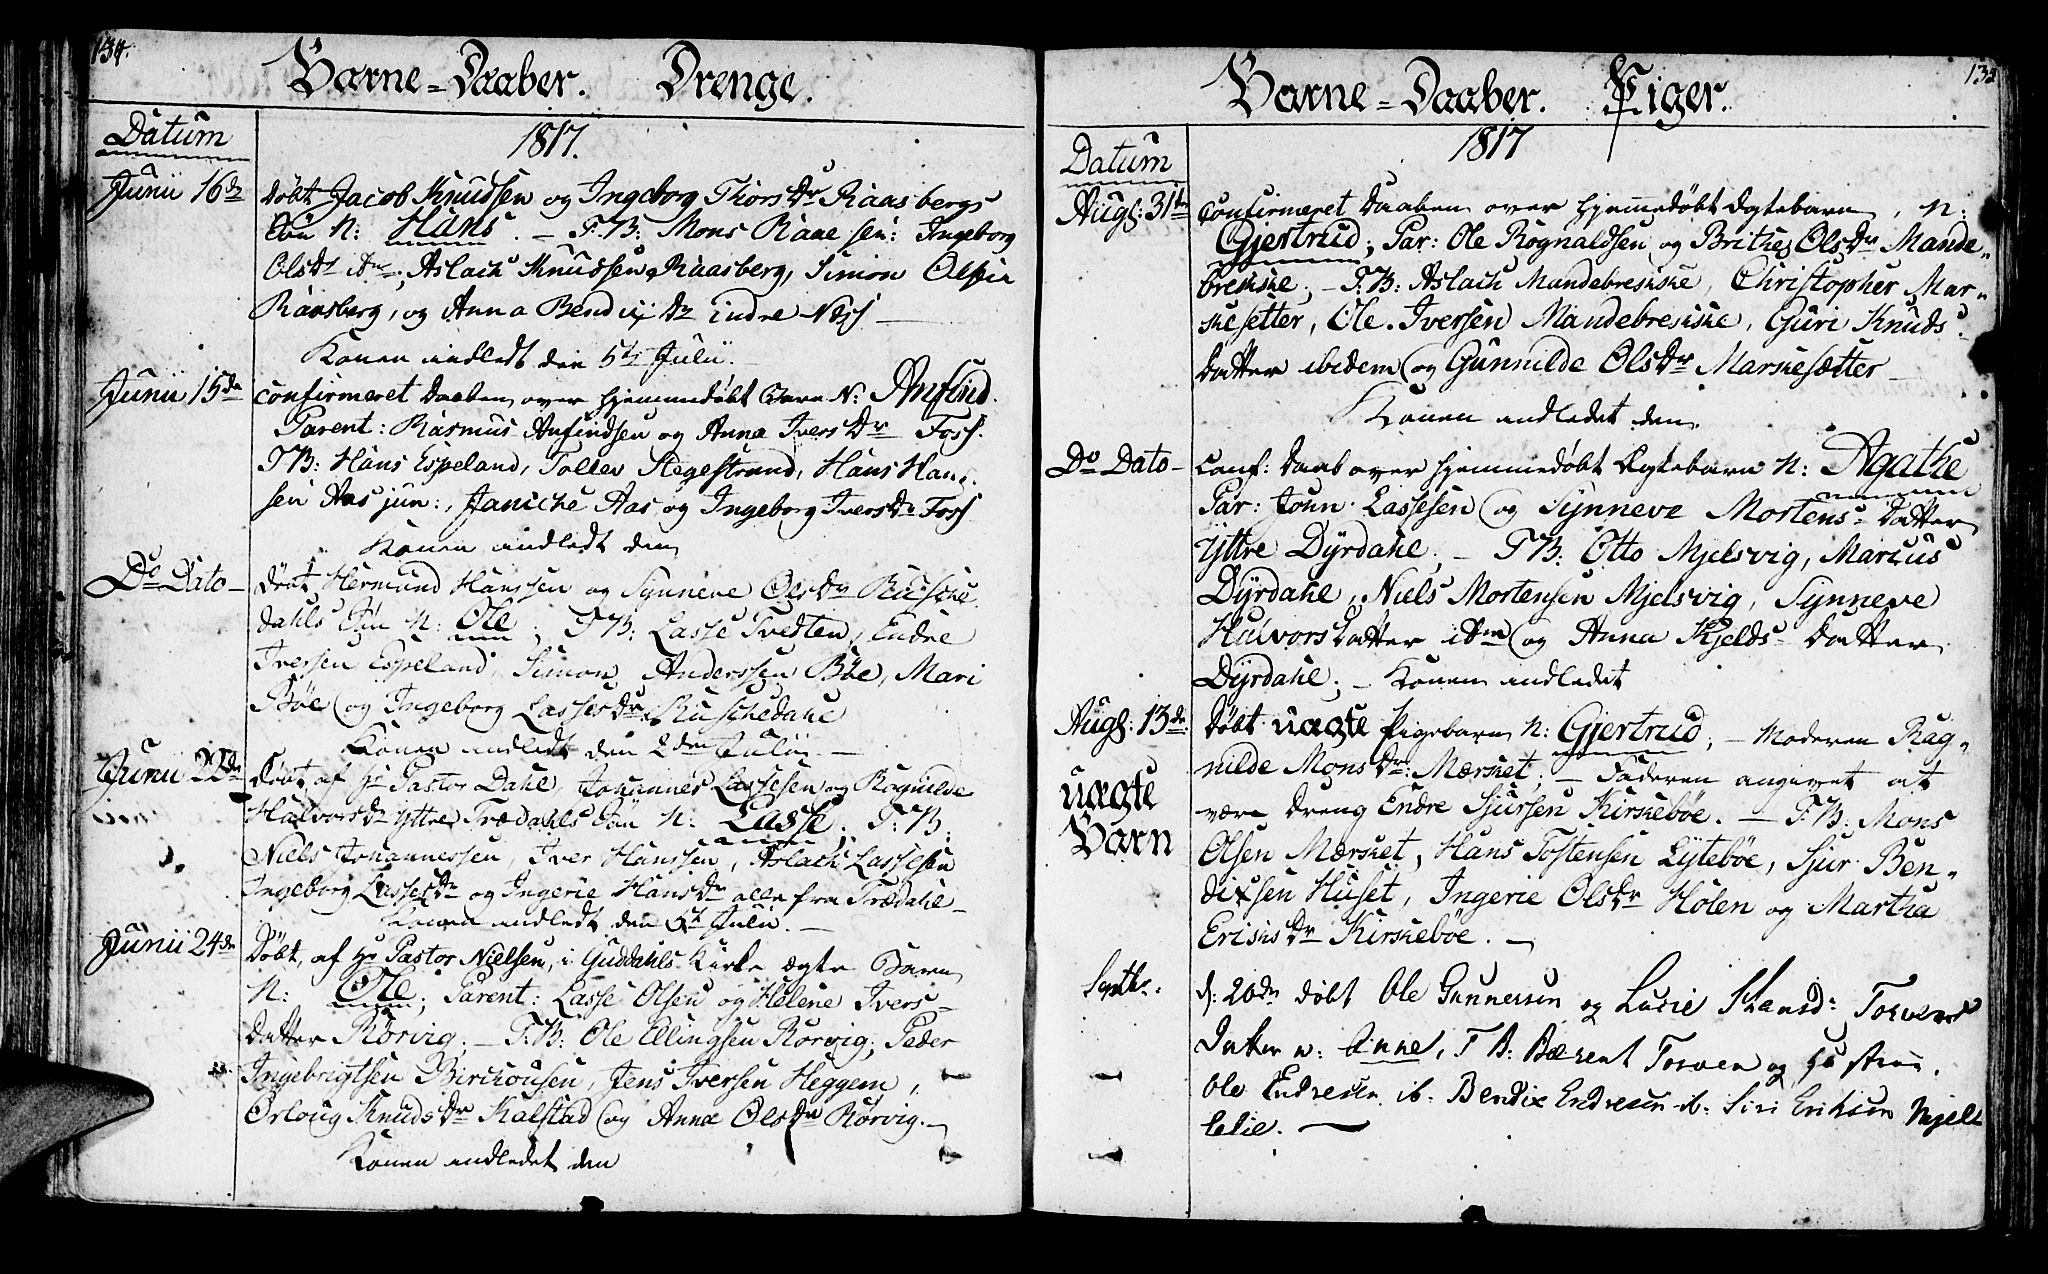 134.
Barne-Daaber. Drenge.
Datum
1817.
Junii 16de
Døbt Jacob Knudsen og Ingeborg ThorsDr Raasbergs
Søn N: Hans. – F.B: Mons Raae sen: Ingeborg
OlsDr ibm, Aslach Knudsen Raasberg, Simon Olsen
Raasberg, og Anna BendixDr indre Næss –
Konen indledt den 5te Julii.
Junii 15de
confirmeret Daaben over hjemmedøbt Barn N: Anfind.
Parent: Rasmus Anfindsen og Anna IversDr Foss.
F.B: Hans Espeland, Tollev Stegestrand, Hans Han-
sen Aas jun:, Janiche Aas og Ingeborg IversDr Foss
Konen indledt den
Do Dato –
Døbt Hermund Hanssen og Synneve OlsDr Rusche
dahls Søn N: Ole; F.B: Lasse Tvedten, Endre
Iversen Espeland, Simon Anderssen Bøe, Mari
Bøe og Ingeborg LassesDr Ruschedahl
Konen indledt den 2den Julii. –
Junii 22de
Døbt af Hr Pastor Dahl, Johannes Lassesen og Rognilde
HalvorsDr Yttre Trædahls Søn N: Lasse; F:B:
Niels Johannessen, Iver Hanssen, Aslach Lassesen
Ingeborg LassesDr og Ingerie HansDr alle fra Trædahl –
Konen indledt den 6te Julii. –
Junii 24de
Døbt, af Hr Pastor Nielsen, i Guddahls Kirke ægte Barn
N: Ole; Parent: Lasse Olsen og Helene Ivers-
Datter Rørvig; – F:B: Ole Ellingsen Rørvig, Peder
Ingebrigtsen Birchousen, Jens Iversen Heggem,
Orloug KnudsDr Kalstad og Anna OlsDr Rørvig. –
Konen indledet den
Barne-Daaber. Piger.
Datum
1817
Augs: 31te
confirmeret Daaben over hjemmedøbt Ægtebarn, N:
Gjertrud; Par: Ole Rognaldsen og Brithe OlsDr Mande-
breskke; – F.B: Aslach Mandebreskke, Christopher Mar-
skesetter, Ole Iversen Mandebreskke, Guri Knuds-
datter ibidem og Gunnilde OlsDr Markesætter –
Konen indledet den
Do Dato –
Conf: Daab over hjemmedøbt Ægtebarn N: Agathe
Par: John Lassesen og Synneve Mortens-Datter
Yttre Dyrdahl; – F.B: Otto Mjelsvig, Marcus
Dyrdahl, Niels Mortensen Mjelsvig, Synneve
HalvorsDatter ibm og Anna Kjelds-Datter
Dyrdahl; – Konen indledet
Augs: 13de:
uægte
Barn
Døbt uægte Pigebarn N: Gjertrud; – Moderen Rag-
nilde MonsDr: Mærsket; – Faderen angivet at
være Dreng Endre Sjursen Kirskebøe. – F.B: Mons
Olsen Mærsket, Hans Tostensen Lytebøe, Sjur Ben-
dixsen Huset, Ingerie OlsDr Holen og Martha
EriksDr Kirskebøe. –
Septbr:
d: 20de døbt Ole Gunnersen og Lucie Hansd: Torvens
Datter n: Anne, F B: Berent Torven og Hustrue.
Ole Endresen ib: Bendix Endresen ib: Siri Eriksen Mjell
lelie.